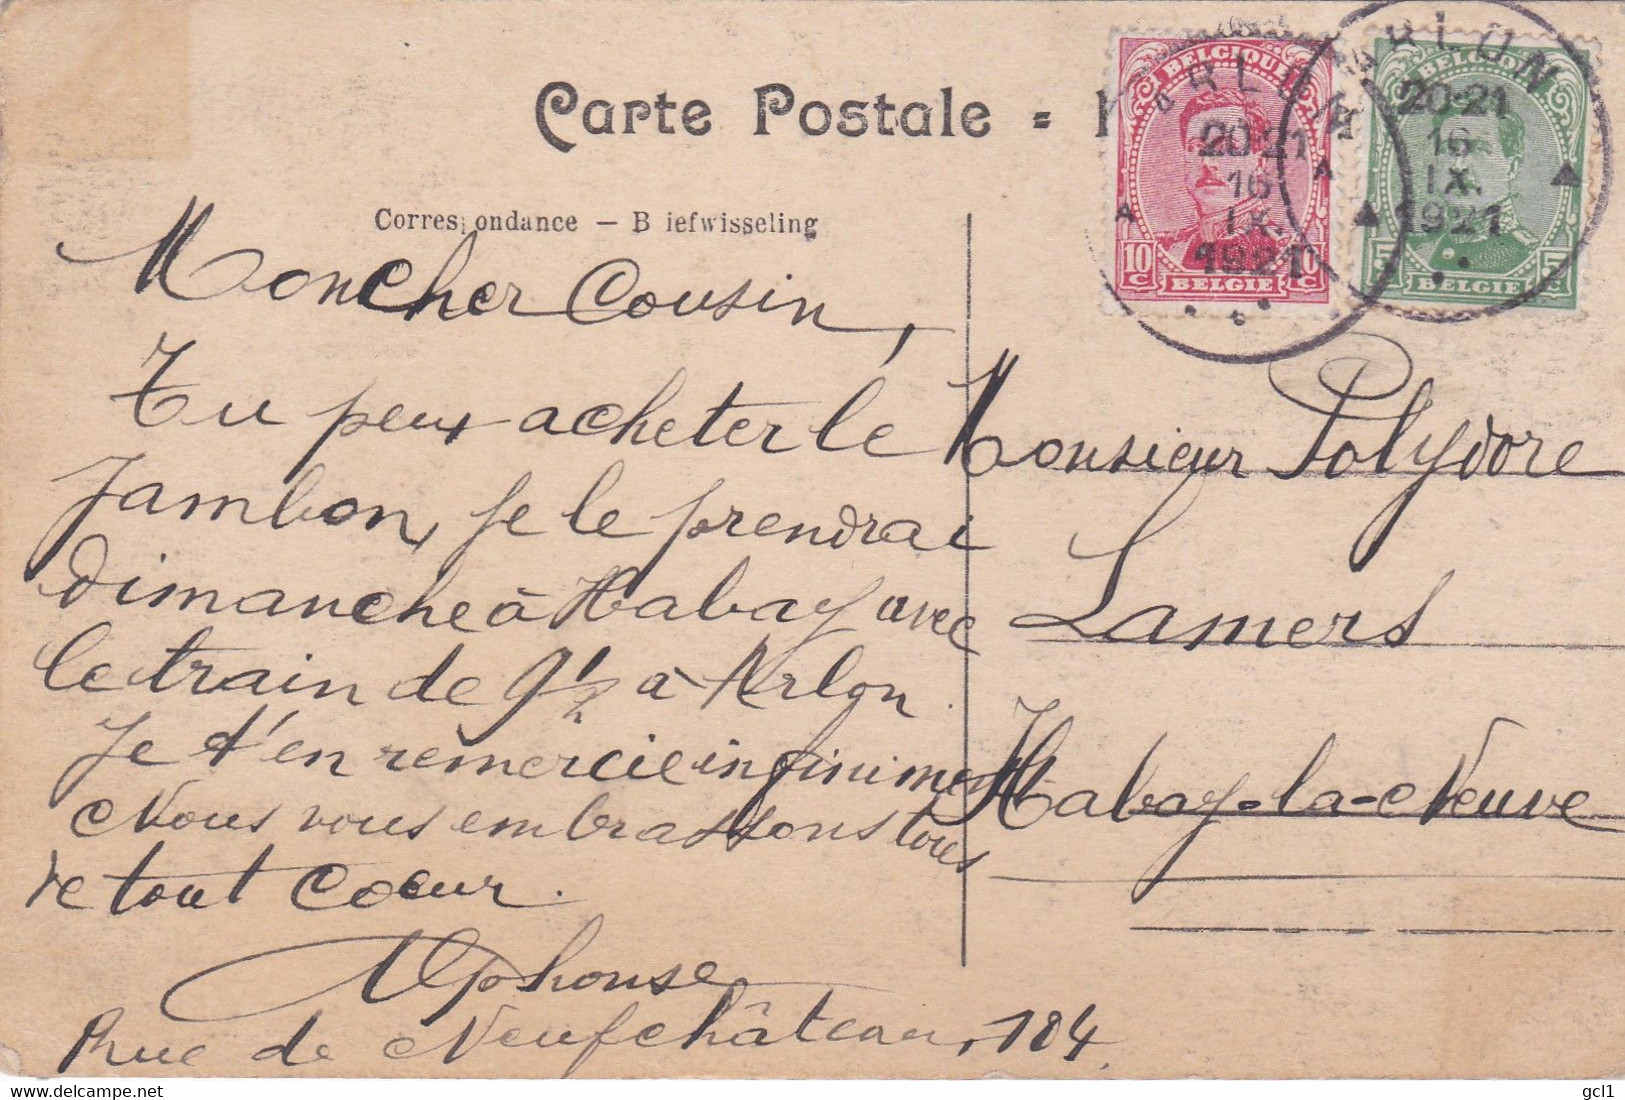 Carte Postale =
Corres ondance — B iefwisseling
BELGIQUE
10 C
BELGIE
ARLON
20-21
16
IX.
1921
BELGIQUE
5 C
BELGIE
ARLON
20-21
16
IX.
1921
Mon cher Cousin,
Tu peux acheter le
Jambon, je le prendrai
dimanche à Habay avec
le train de 9 1/2 à Arlon.
Je t'en remercie infiniment
Nous vous embrassons tous
de tout coeur.
Alphonse
Rue de Neufchâteau, 184.
Monsieur Polydore
Lamers
Habay-la-Neuve
Delcampe.net
gcl1